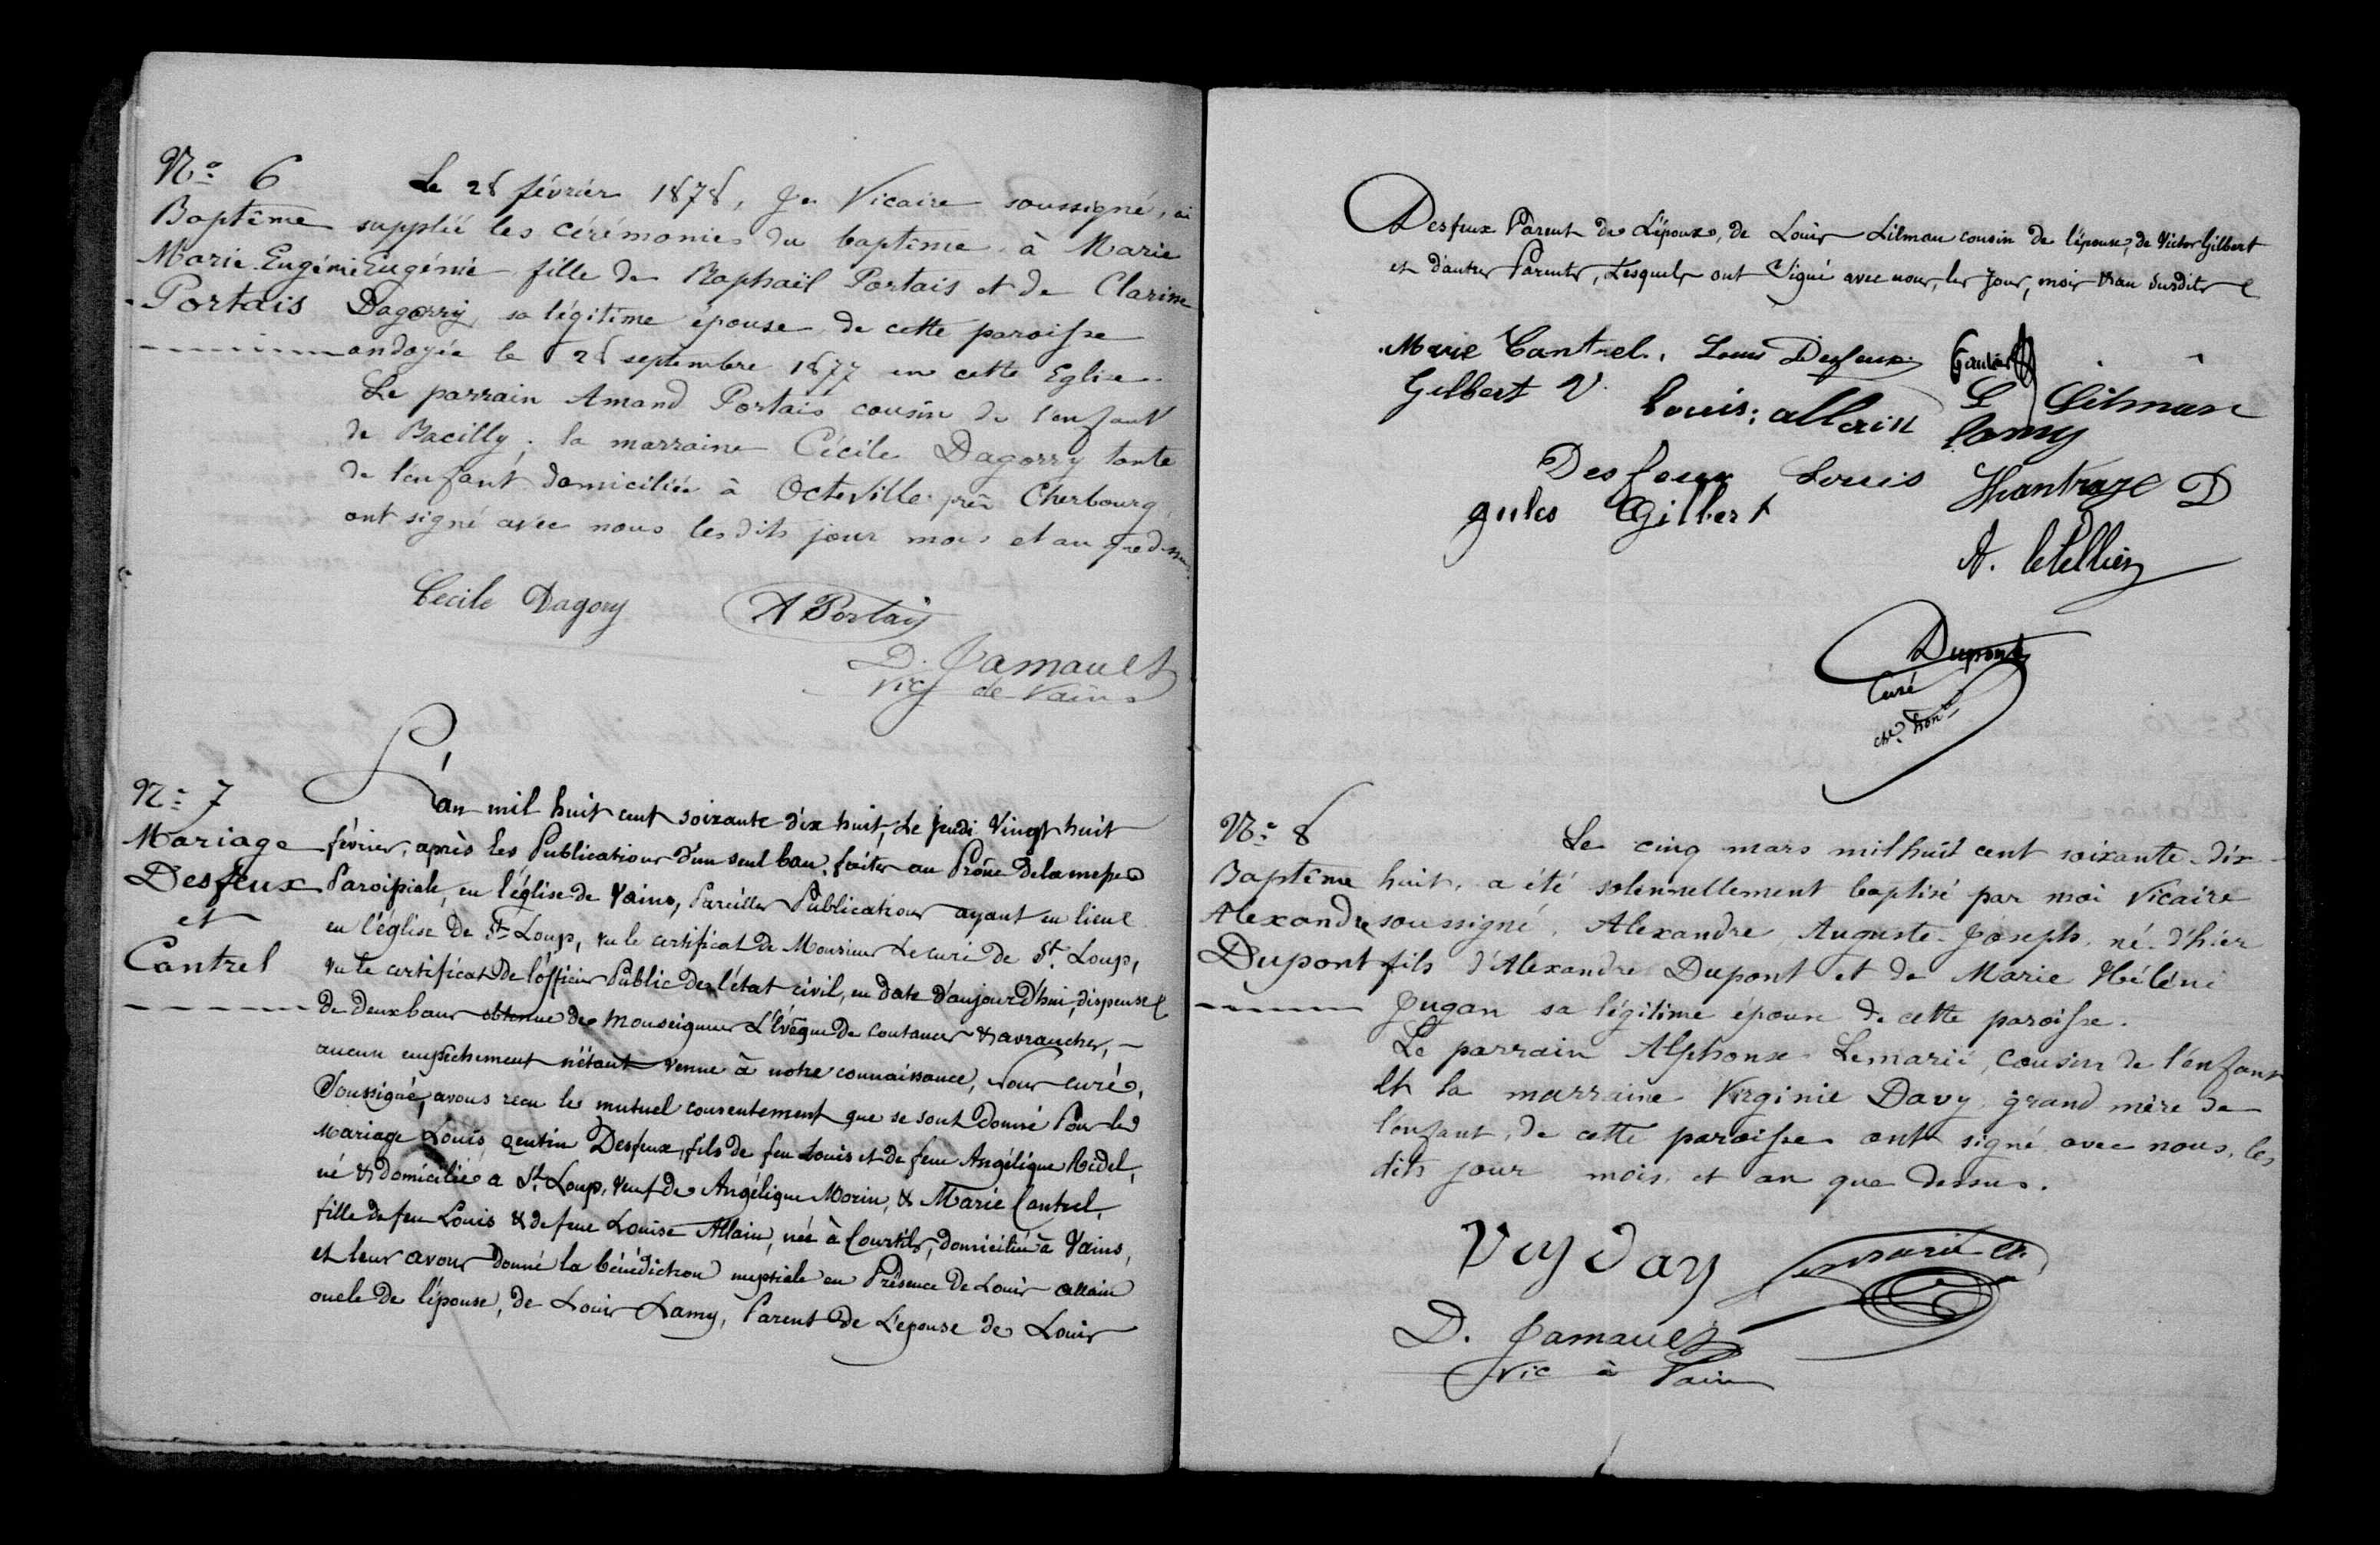 N.o 6
Baptême
Marie Eugénie
Portais
Le 28 février 1878, Je Vicaire soussigné, ai
suppléé les cérémonies du baptême à Marie
Eugénie fille de Raphaël Portais et de Clarisse
Dagorry, sa légitime épouse de cette paroisse
ondoyée le 28 septembre 1877 en cette Eglise.
Le parrain Amand Portais cousin de l'enfant
de Bacilly; la marraine Cécile Dagorry tante
de l'enfant domiciliée à Octeville près Cherbourg,
ont signé avec nous lesdits jour mois et an que dessus.
Cecile Dagory A Portais
D. Jamault
Vic de Vains
N.o 7
Mariage
Desfeux
et
Cantrel
L'an mil huit cent soixante dix huit, Le Jeudi Vingt huit
février, après les Publications d'un seul ban, faites au Prône de la messe
Paroissiale, en l'église de Vains, Pareilles Publications ayant eu lieu
en l'église de St. Loup, vu le certificat de Monsieur Le curé de St. Loup,
vu le certificat de l'officier Public de l'état civil, en date d'aujourd'hui, dispense
de deux bans obtenue de Monseigneur L'évêque de Coutances & avranches,
aucun empêchement n'étant venue à notre connaissance, Nous curé,
Soussigné, avons reçu le mutuel consentement que se sont donné Pour le
Mariage Louis Quentin Desfeux, fils de feu Louis et de feue Angélique Ridel,
né & domicilié a St. Loup, veuf de Angélique Morin, & Marie Cantrel,
fille de feu Louis & de feue Louise Allain, née à Courtils, domiciliée à Vains,
et leur avons donné la bénédiction nuptiale en Présence de Louis allain
oncle de l'épouse, de Louis Lamy, Parent de L'epouse de Louis
Desfeux Parent de L'époux, de Louis Litman cousin de l'épouse, de Victor Gilbert
et d'autres Parents, Lesquels ont Signé avec nous, les Jour, mois & an susdits
Marie Cantrel. Louis Desfeux Gautier
Gilbert V. Louis allain L Litman
Lamy
Desfeux Louis D
jules Gilbert
A. leTellier
Dupont
Curé
ch. hon.
N.o 8
Baptême
Alexandre
Dupont
Le cinq mars mil huit cent soixante-dix-
huit, a été solennellement baptisé par moi Vicaire
soussigné, Alexandre Auguste Joseph, né d'hier
fils d'Alexandre Dupont et de Marie Hélène
Jugan sa légitime épouse de cette paroisse.
Le parrain Alphonse Lemarié, cousin de l'enfant
et la marraine Virginie Davy, grand mère de
l'enfant, de cette paroisse ont signé avec nous, les
dits jour mois et an que dessus.
D. Jamault
Vic à Vains